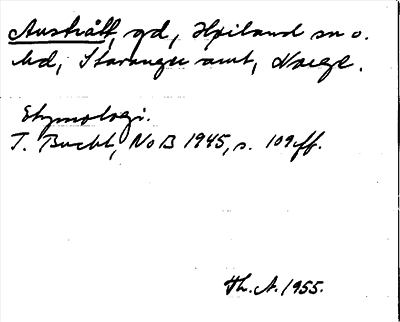 Austrått, gd, Høiland sn o.
hd, Stavanger amt, Norge.
Etymologi.
T. Bucht, NoB 1945, s. 109ff.
Th. A. 1955.